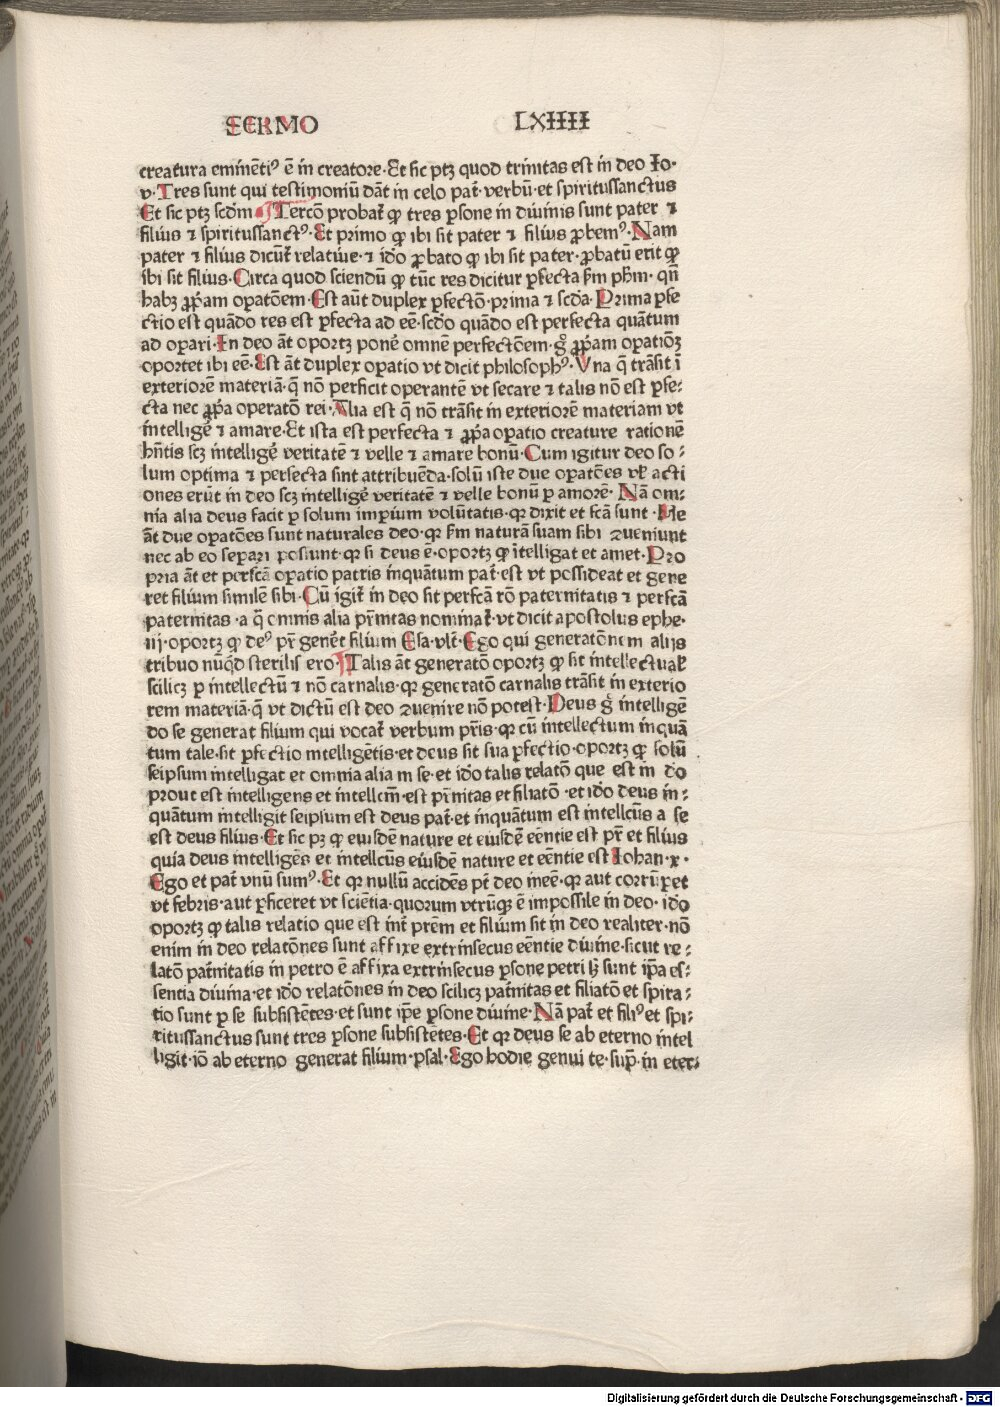 SERMO LXIIII
creatura eminẽtiꝰ ẽ in creatore·Et sic ptꝫ quod trinitas est in deo Io·
v·Tres sunt qui testimoniũ dãt in celo pat̃·verbũ·et spiritussanctus
Et sic ptꝫ scd̃m ¶Tercõ probat̃ ꝙ tres ꝑsone in diuinis sunt pater ⁊
filius ⁊ spiritussanctꝰ·Et primo ꝙ ibi sit pater ⁊ filius ꝓbemꝰ·Nam
pater ⁊ filius dicũt̃ relatiue·⁊ iđo ꝓbato ꝙ ibi sit pater·ꝓbatũ erit ꝙ
ibi sit filius·Circa quod sciendũ ꝙ tũc res dicitur ꝑfecta s̃m pħm·qñ
habꝫ ꝓp̃am oꝑatõem·Est aũt duplex ꝑfectõ·prima ⁊ scđa·Prima ꝑfe
ctio est quãdo res est ꝑfecta ad eẽ·scđo quãdo est perfecta quãtum
ad oꝑari·In deo ãt oportꝫ ponẽ omnẽ perfectõem·g̃ ꝓp̃am oꝑatiõꝫ
oportet ibi eẽ·Est ãt duplex oꝑatio vt dicit philosophꝰ·Vna q̃ trãsit ĩ
exteriorẽ materiã·q̃ nõ perficit operantẽ vt secare ⁊ talis nõ est ꝑfe⸗
cta nec ꝓp̃a operatõ rei·Alia est q̃ nõ trãsit in exteriorẽ materiam vt
intelligẽ ⁊ amare·Et ista est perfecta ⁊ ꝓp̃a oꝑatio creature rationẽ
hñtis scꝫ intelligẽ veritatẽ ⁊ velle ⁊ amare bonũ·Cum igitur deo so⸗
lum optima ⁊ perfecta sint attribuẽda·solũ iste due oꝑatões vł acti
ones erũt in deo scꝫ intelligẽ veritatẽ ⁊ velle bonũ ꝑ amorẽ·Nã om⸗
nia alia deus facit ꝑ solum imꝑium volũtatis·qꝛ dixit et fc̃a sunt·He
ãt due oꝑatões sunt naturales deo·qꝛ s̃m naturã suam sibi ꝯueniunt
nec ab eo seꝑari possunt·qꝛ si deus ẽ·oportꝫ ꝙ ĩtelligat et amet·Pro
pria ãt et perfc̃a oꝑatio patris inquãtum pat̃·est vt possideat et gene
ret filium similẽ sibi·Cũ igit̃ in deo sit perfc̃a rõ paternitatis ⁊ perfc̃a
paternitas·a q̃ omnis alia pr̃nitas nominat̃·vt dicit apostolus ephe·
iij·oportꝫ ꝙ deꝰ pr̃ genẽt filium Esa·vlt̃·Ego qui generatõnem alijs
tribuo nũqđ sterilis ero ¶Talis ãt generatõ oportꝫ ꝙ sit intellectual̃
scilicꝫ ꝑ intellectũ ⁊ nõ carnalis·qꝛ generatõ carnalis trãsit in exterio
rem materiã·q̃ vt dictũ est deo ꝯuenire nõ potest·Deus g̃ intelligẽ
do se generat filium qui vocat̃ verbum pr̃is·qꝛ cũ intellectum inquã
tum tale·sit ꝑfectio intelligẽtis·et deus sit sua ꝑfectio·oportꝫ ꝙ solũ
seipsum intelligat et omnia alia in se·et iđo talis relatõ que est in do
prout est intelligens et intellcm̃·est pr̃nitas et filiatõ·et iđo deus in⸗
quãtum intelligit seipsum est deus pat̃·et inquãtum est intellcũs a se
est deus filius·Et sic pꝫ ꝙ eiusdẽ nature et eiusdẽ eẽntie est pr̃ et filius
quia deus intelligẽs et intellcũs eiusdẽ nature et eẽntie est Iohan·x·
Ego et pat̃ vnũ sumꝰ·Et qꝛ nullũ accidẽs pt̃ deo ineẽ·qꝛ aut corrũꝑet
vt febris·aut ꝑficeret vt sciẽtia·quorum vtrũqꝫ ẽ impossile in deo·iđo
oportꝫ ꝙ talis relatio que est int̃ prẽm et filium sit in deo realiter·nõ
enim in deo relatõnes sunt affixe extrinsecus eẽntie diuine·sicut re⸗
latõ pat̃nitatis in petro ẽ affixa extrinsecus ꝑsone petri lꝫ sunt ip̃a es⸗
sentia diuina·et iđo relatõnes in deo scilicꝫ pat̃nitas et filiatõ et spira⸗
tio sunt ꝑ se subsistẽtes·et sunt ip̃e ꝑsone diuine·Nã pat̃ et filiꝰ et spi⸗
ritussanctus sunt tres ꝑsone subsistẽtes·Et qꝛ deus se ab eterno intel
ligit·iõ ab eterno generat filium·psal·Ego hodie genui te·sup̃·in eter⸗
Digitalisierung gefördert durch die Deutsche Forschungsgemeinschaft - DFG